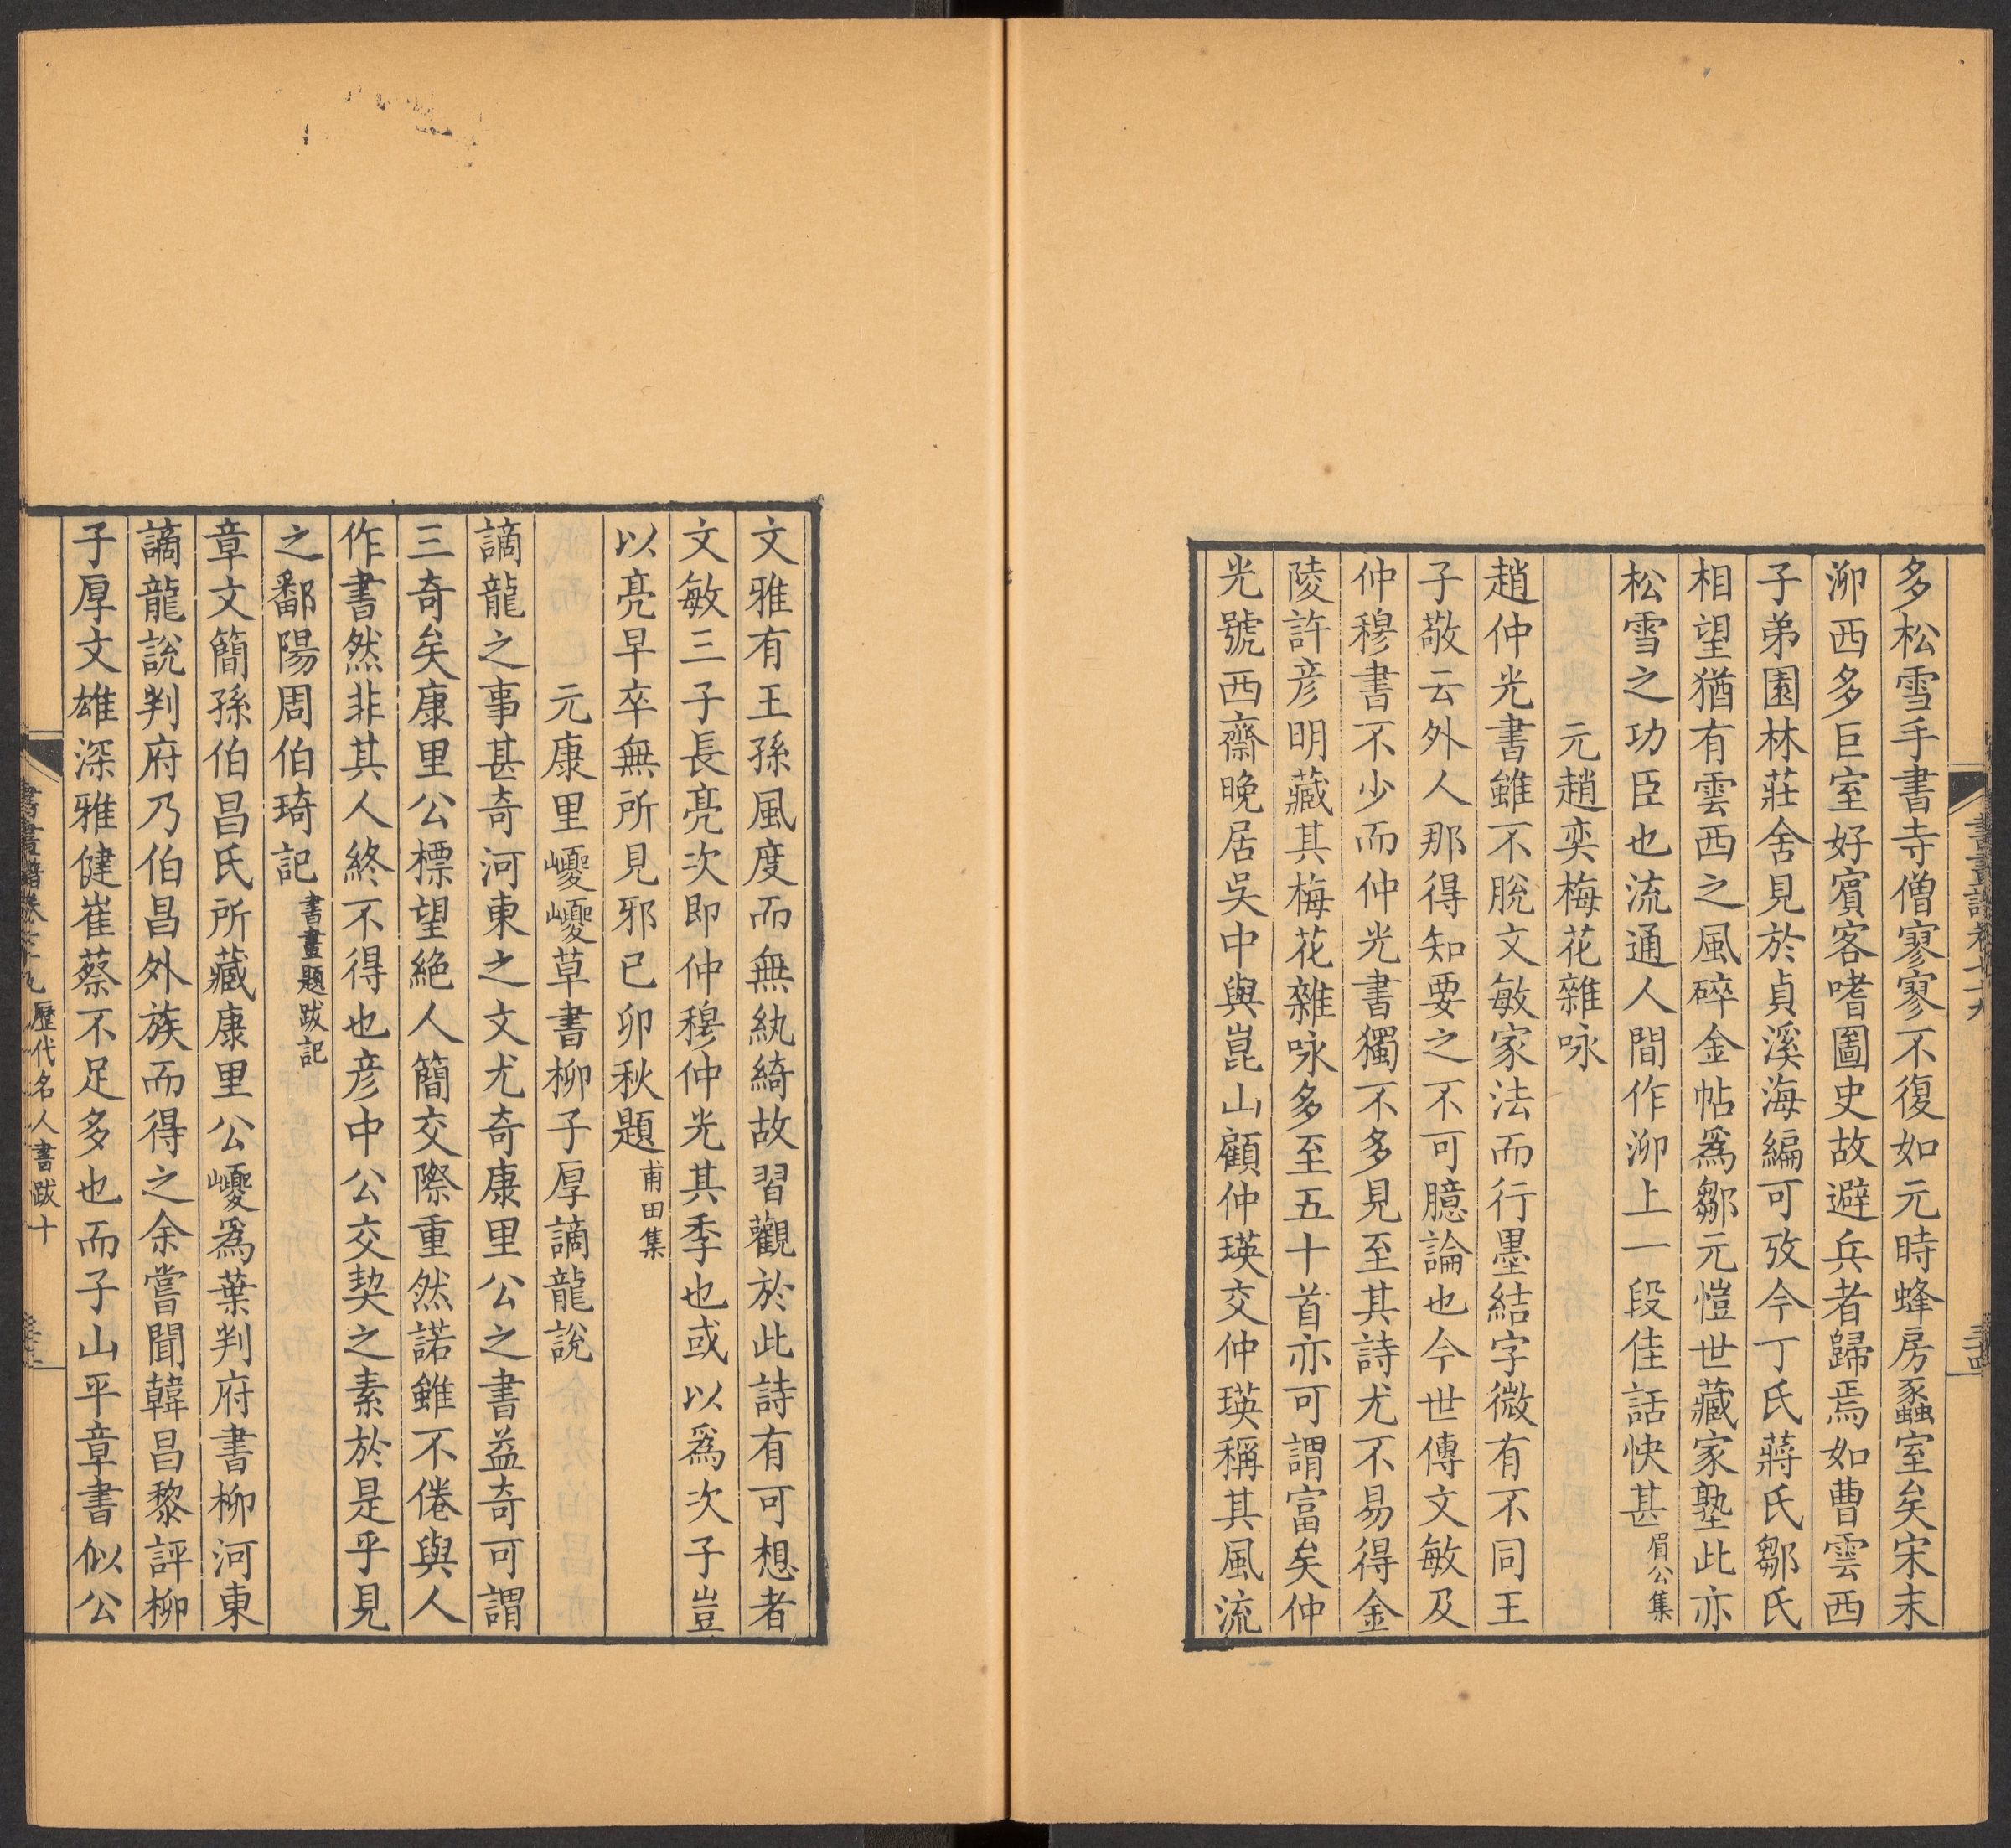 多松雪手書寺僧寥寥不復如元時蜂房蠡室矣宋末
泖西多巨室好賓客嗜圖史故避兵者歸焉如曹雲西
子弟園林莊舍見於貞溪海編可攷今丁氏蔣氏鄒氏
相望猶有雲西之風碎金帖爲鄒元愷世藏家塾此亦
松雪之功臣也流通人間作泖上一段佳話快甚眉公集
元趙奕梅花雜咏
趙仲光書雖不脫文敏家法而行墨結字微有不同王
子敬云外人那得知要之不可臆論也今世傳文敏及
仲穆書不少而仲光書獨不多見至其詩尤不易得金
陵許彥明藏其梅花雜咏多至五十首亦可謂富矣仲
光號西齋晚居吳中與崑山顧仲瑛交仲瑛稱其風流
文雅有王孫風度而無紈綺故習觀於此詩有可想者
文敏三子長亮次即仲穆仲光其季也或以爲次子豈
以亮早卒無所見邪已卯秋題甫田集
元康里巙巙草書柳子厚謫龍說
謫龍之事甚奇河東之文尤奇康里公之書益奇可謂
三奇矣康里公標望絶人簡交際重然諾雖不倦與人
作書然非其人終不得也彥中公交契之素於是乎見
之鄱陽周伯琦記書畫題跋記
章文簡孫伯昌氏所藏康里公巙爲葉判府書柳河東
謫龍說判府乃伯昌外族而得之余嘗聞韓昌黎評柳
子厚文雄深雅健崔蔡不足多也而子山平章書似公
歷代名人書跋十